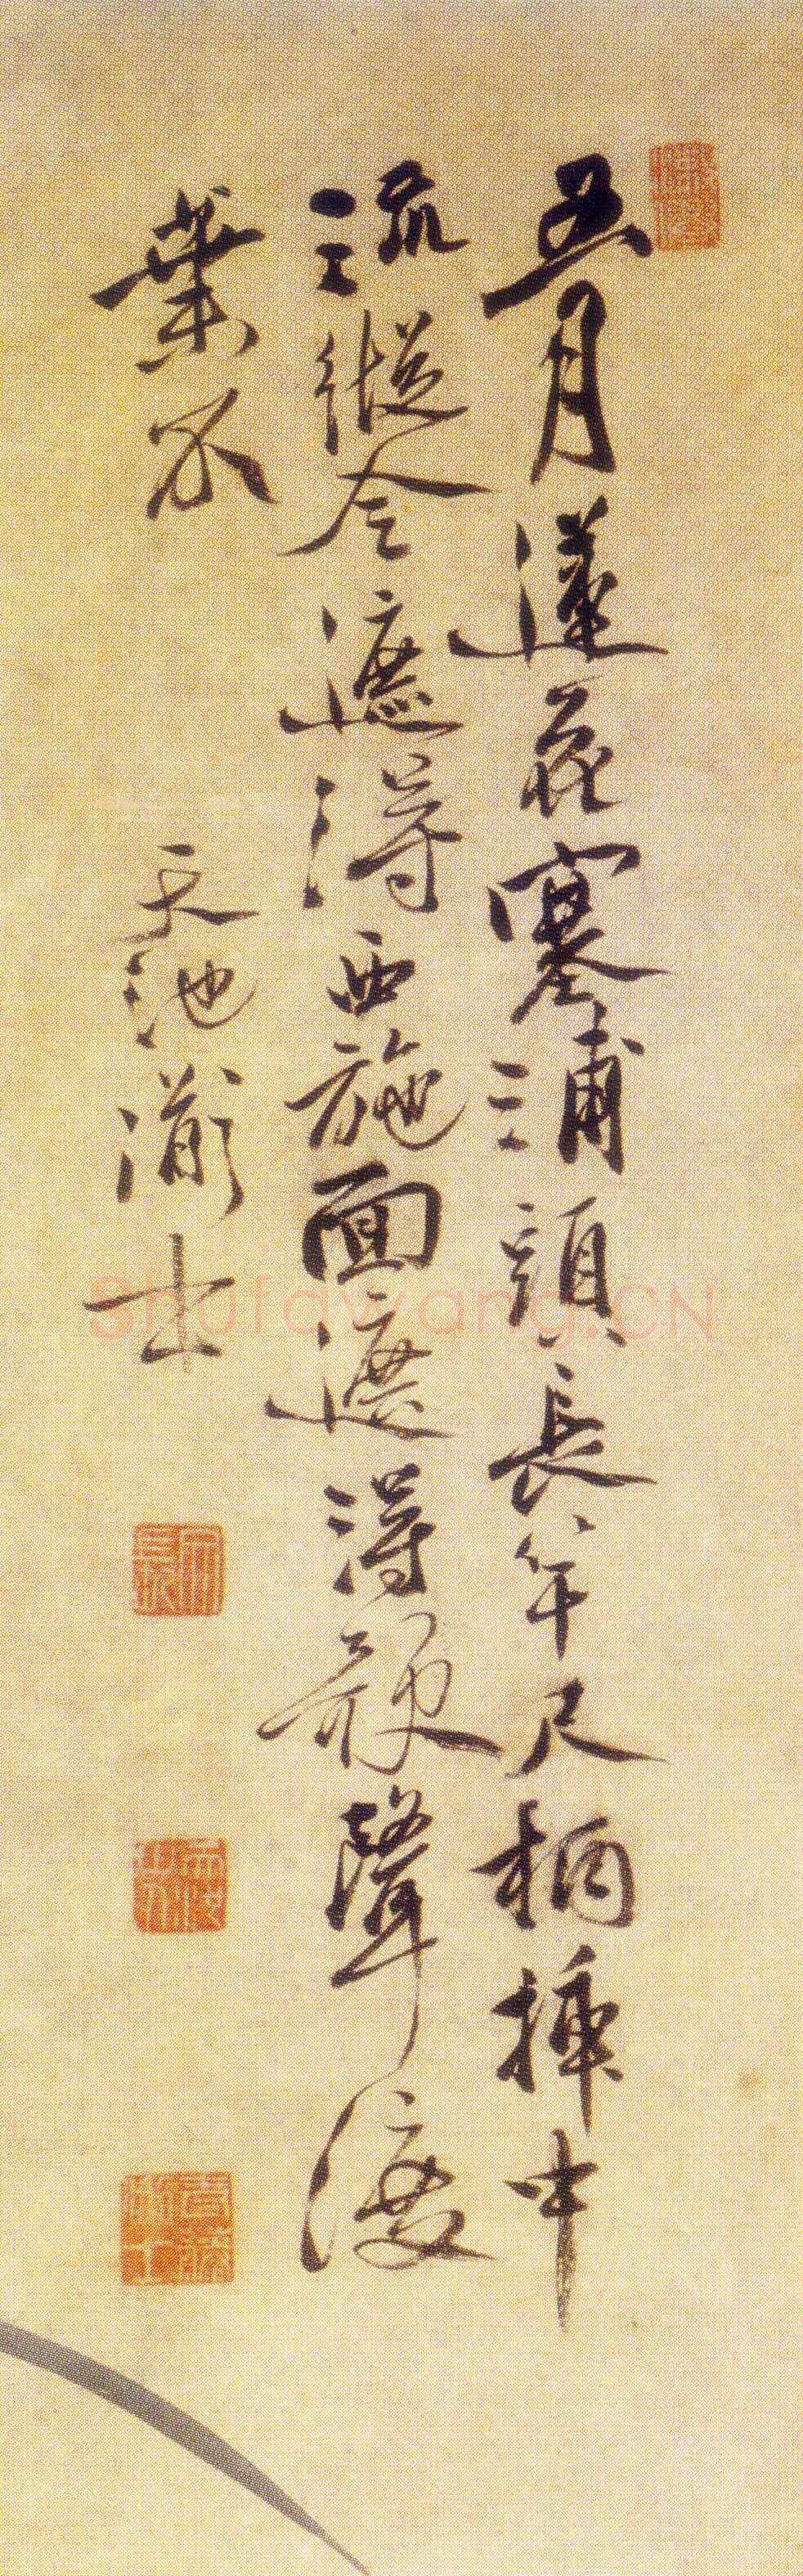 五月蓮花塞浦頭長竿尺柄插中
流縱令遮得西施面遮得歌聲渡
葉不
天池漱士
Shufawang.CN